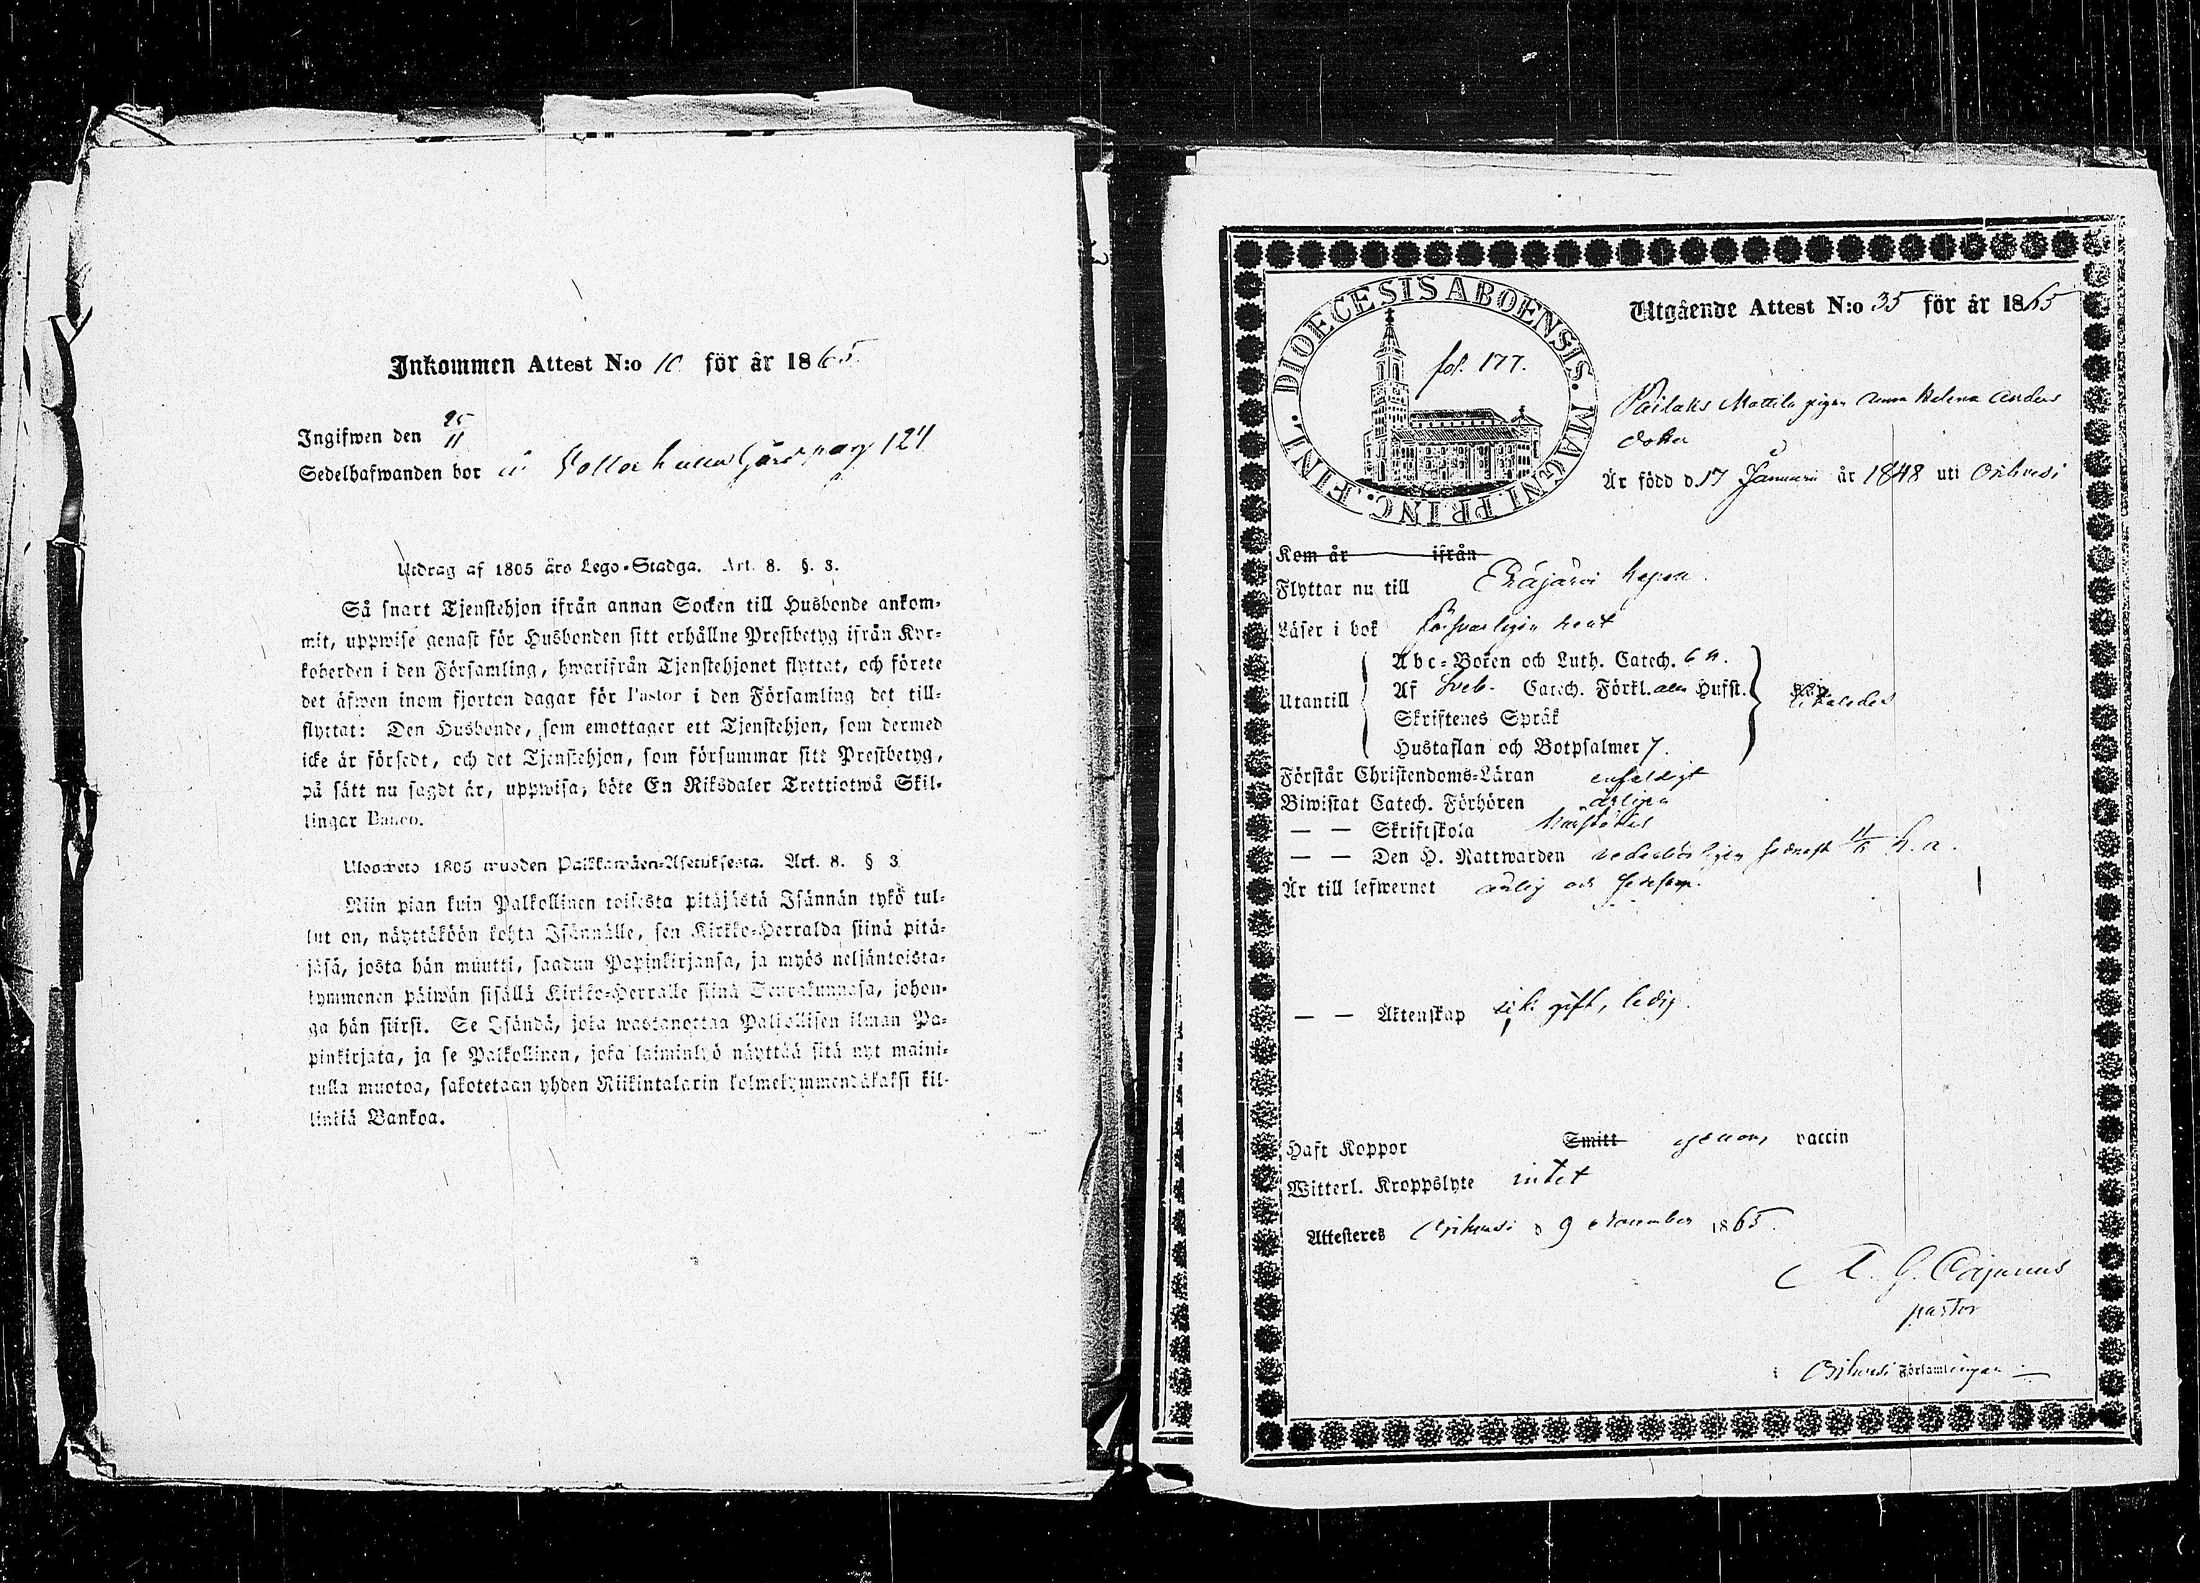 Inkommen Attest N:o 10 för år 1865.
Ingifwen den 25/11
Sedelhafwanden bor pag 124
Utdrag af 1805 års Lego-Stadga. Art. 8. §. 3.
Så snart Tjenstehjon ifrån annan Socken till Husbonde ankom-
mit, uppwise genast för Husbonden sitt erhållne Prestbetyg ifrån Kyr-
koherden i den Församling, hwarifrån Tjenstehjonet flyttat, och förete
det äfwen inom fjorton dagar för Pastor i den Församling det till-
flyttat: Den Husbonde, som emottager ett Tjenstehjon, som dermed
icke är försedt, och det Tjenstehjon, som försummar sitt Prestbetyg,
på sätt nu sagdt är, uppwisa, böte En Riksdaler Trettiotwå Skil-
lingar Banco.
Ulosweto 1805 wuoden Palkkawäen-Asetuksesta. Art. 8. § 3
Niin pian kuin Palkollinen toisesta pitäjästä Isännän tykö tul-
lut on, näyttäköön kohta Isännälle, sen Kirkko-Herralda siinä pitä-
jäsä, josta hän muutti, saadun Papinkirjansa, ja myös neljäntoista-
kymmenen päiwän sisällä Kirkko-Herralle siinä Seurakunnasa, johon-
ga hän siirsi. Se Isändä, joka wastanottaa Palkollisen ilman Pa-
pinkirjata, ja se Palkollinen, joka laiminlyö näyttää sitä nyt maini-
tulla muotoa, sakotetaan yhden Riikintalarin kolmekymmendäkaksi kil-
linkiä Bankoa.
DIOECESIS ABOENSIS. MAGNI. PRINC. FINL.
fol. 177.
Utgående Attest N:o 35 för år 1865
Pailaks Mattila pigan Anna Helena Anders
doter
Är född d. 17 Januari år 1848 uti Orihvesi
Kom år ifrån
Flyttar nu till Eräjärvi kapell.
Läser i bok försvarligen
Utantill
Abc-Boken och Luth. Catech. 6 h.
Af Sveb. Catech. Förkl. Hufst.
Skriftenes Språk
Hustaflan och Botpsalmer 7.
Likaledes
Förstår Christendoms-Läran enfaldigt
Biwistat Catech. Förhören årligen
— — Skriftskola
— — Den H. Nattwarden senast h. a.
Är till lefwernet ärlig och
— — Äktenskap ej gift, ledig.
Haft Koppor Smitt genom vaccin
Witterl. Kroppslyte intet
Attesteres Orihvesi d 9 November 1865.
A. G. Cajanus
pastor
i Orihvesi Församlingar